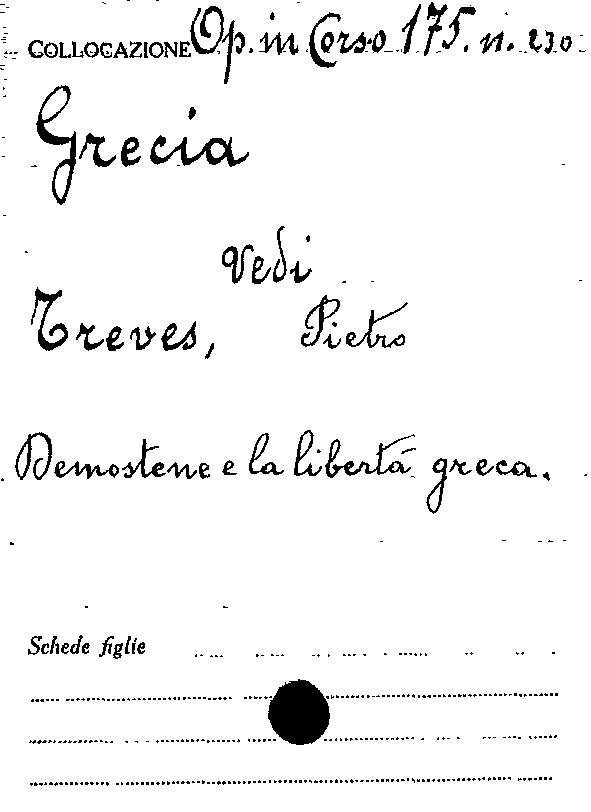 COLLOCAZIONE Op. in Corso 175. n. 230
Grecia
Vedi
Treves, Pietro
Demostene e la libertá greca.
Schede figlie